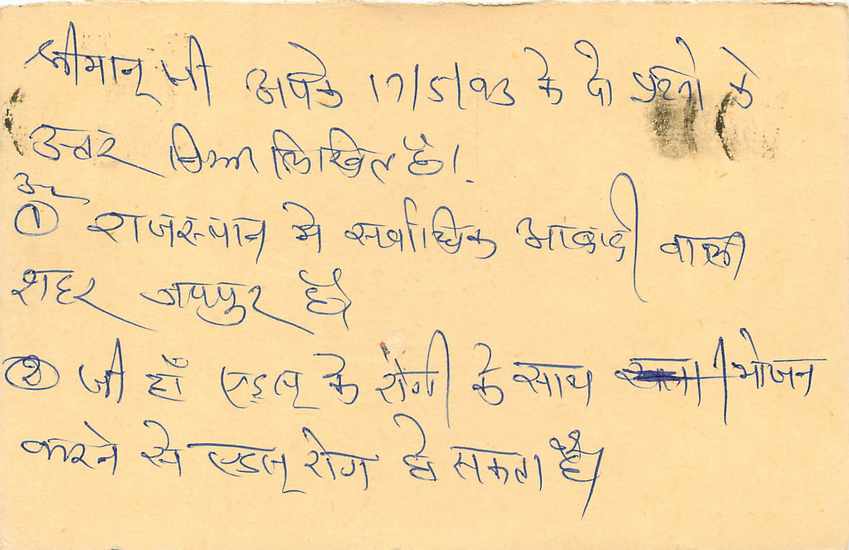 श्रीमान् जी आपके 17/5/93 के दो प्रश्नो के
उत्तर निम्न लिखित है।
उ०
① राजस्थान मे सर्वाधिक आबादी वाला
शहर जयपुर है
② जी हाँ एड्स के रोगी के साथ भोजन
करने से एड्स रोग हो सकता है।